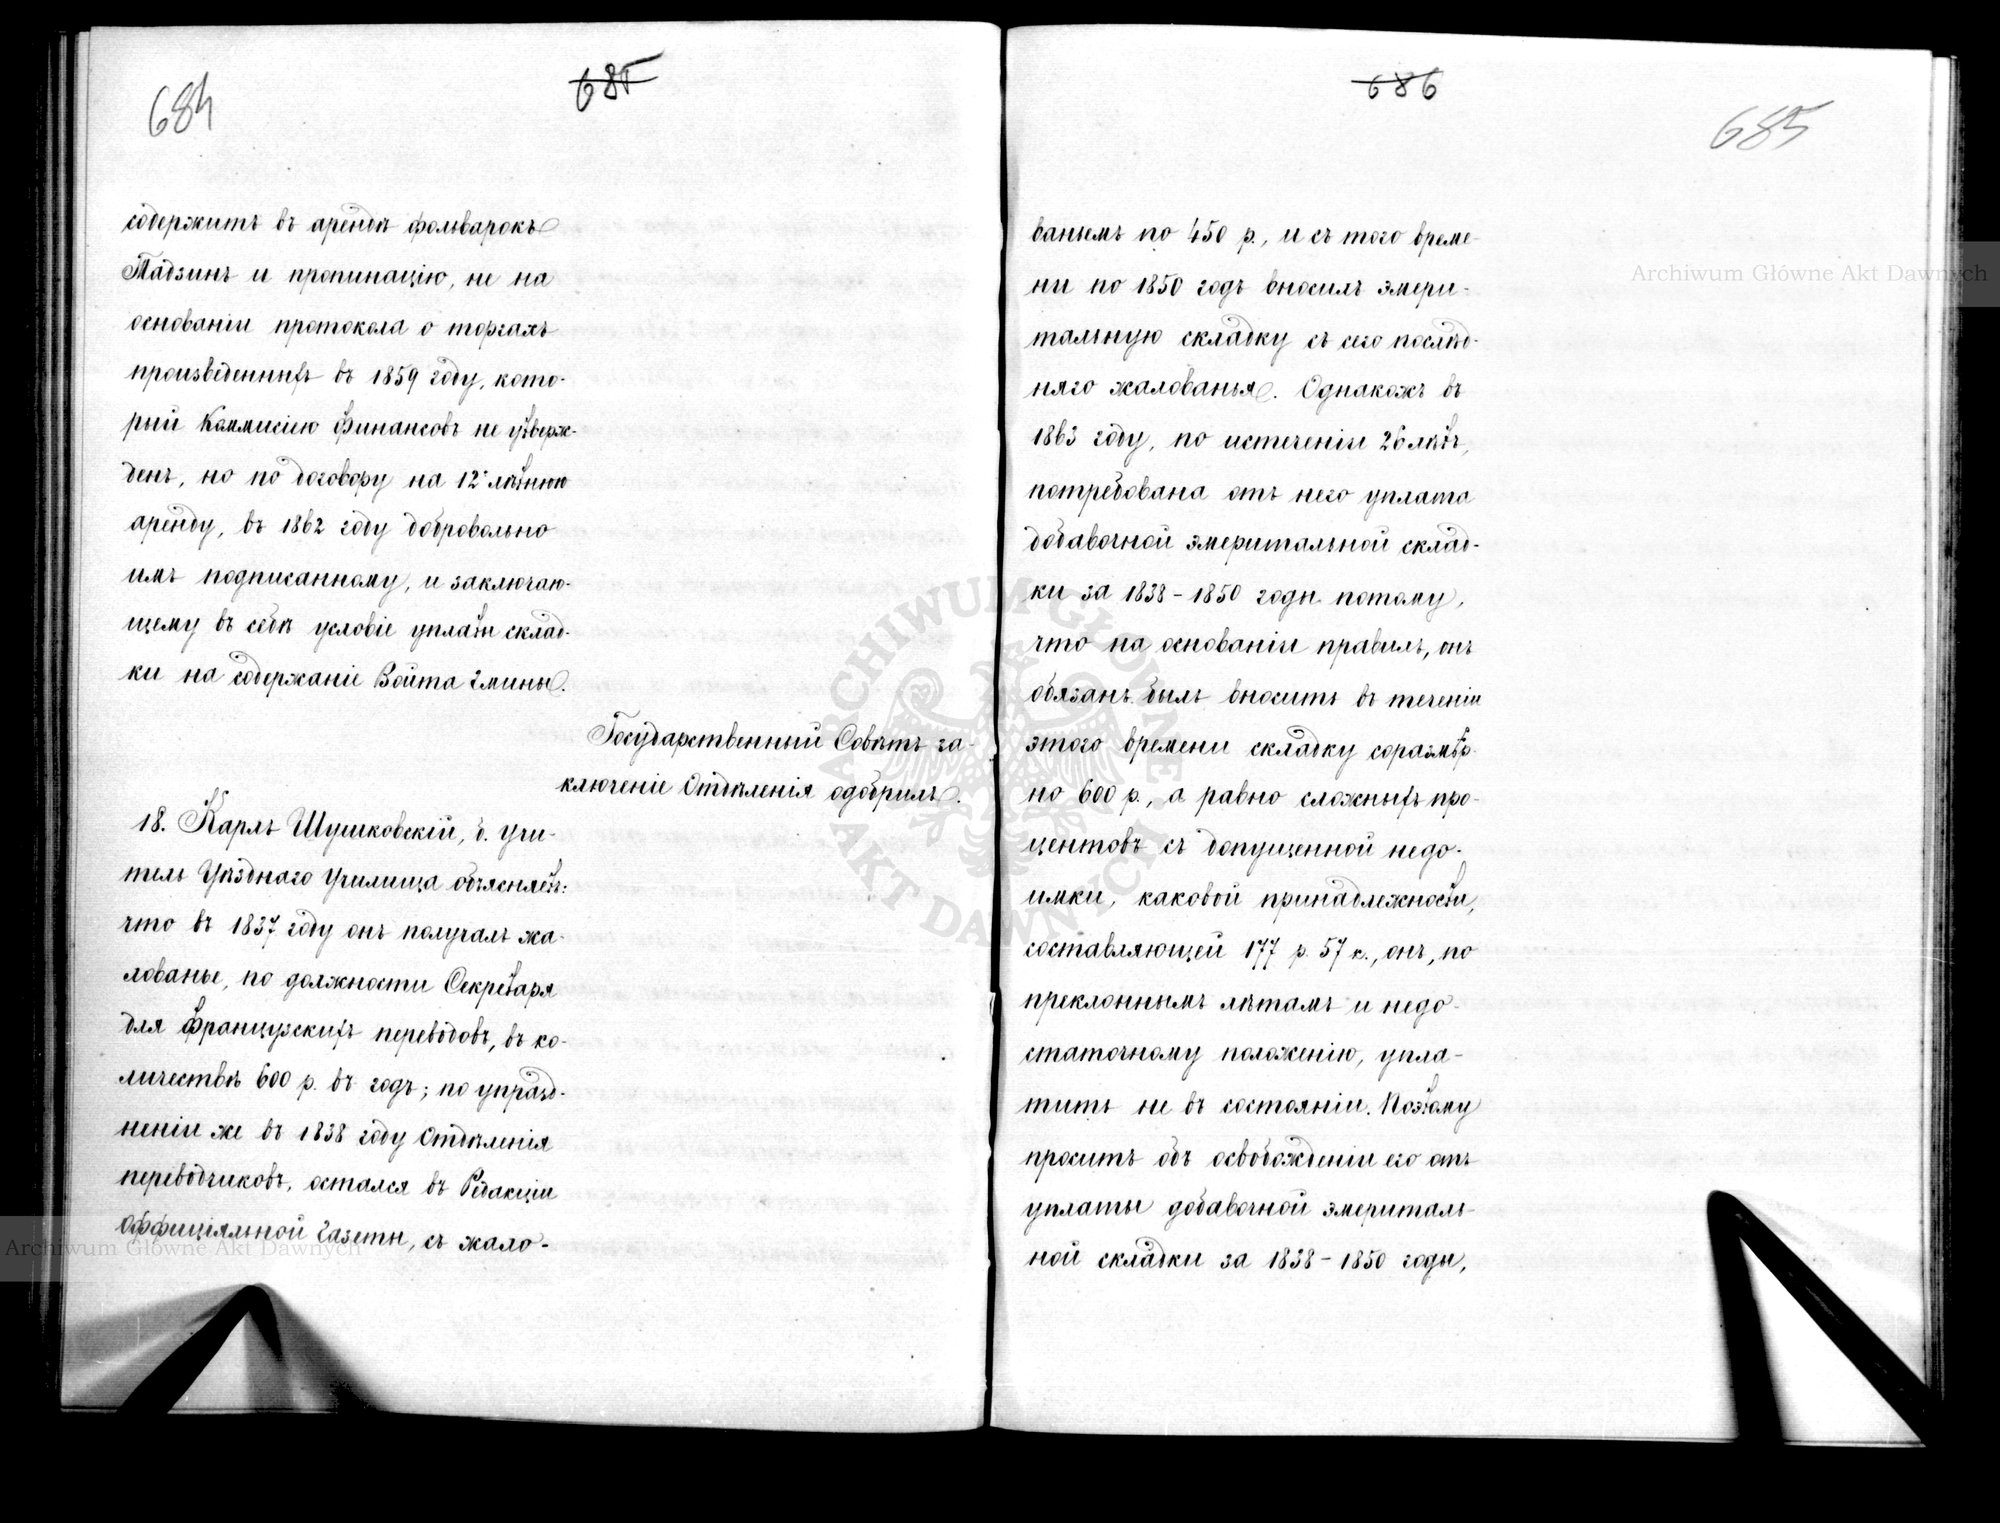 684
685
содержитъ въ арендѣ фольварокъ
Тадзинъ и пропинацію, не на
основаніи протокола о торгахъ
произведенныхъ въ 1859 году, кото-
рый Коммисіею Финансовъ не утверж-
денъ, но по договору на 12-лѣтнюю
аренду, въ 1862 году добровольно
имъ подписанному, и заключаю-
щему въ себѣ условіе уплаты склад-
ки на содержаніе Войта Гмины.
Государственный Совѣтъ за-
ключеніе Отдѣленія одобрилъ.
18. Карлъ Шушковскій, б. Учи-
тель Уѣзднаго Училища объясняетъ:
что въ 1837 году онъ получалъ жа-
лованье, по должности Секретаря
для Французскихъ переводовъ, въ ко-
личествѣ 600 р. въ годъ; по упразд-
неніи же въ 1838 году Отдѣленія
переводчиковъ, остался въ Редакціи
Оффиціяльной Газеты, съ жало-
686
685
ваньемъ по 450 р., и съ того време-
ни по 1850 годъ вносилъ эмери-
тальную складку съ сего послѣд-
няго жалованья. Однакожъ въ
1863 году, по истеченіи 26 лѣтъ,
потребована отъ него уплата
добавочной эмеритальной склад-
ки за 1838-1850 годы потому,
что на основаніи правилъ, онъ
обязанъ былъ вносить въ теченіи
этого времени складку соразмѣр-
но 600 р., а равно сложныхъ про-
центовъ съ допущенной недо-
имки, каковой принадлежности,
составляющей 177 р. 57 к., онъ, по
преклоннымъ лѣтамъ и недо-
статочному положенію, упла-
тить не въ состояніи. Поэтому
проситъ объ освобожденіи его отъ
уплаты добавочной эмериталь-
ной складки за 1838-1850 годы,
Archiwum Główne Akt Dawnych
ARCHIWUM GŁÓWNE
AKT DAWNYCH
Archiwum Główne Akt Dawnych